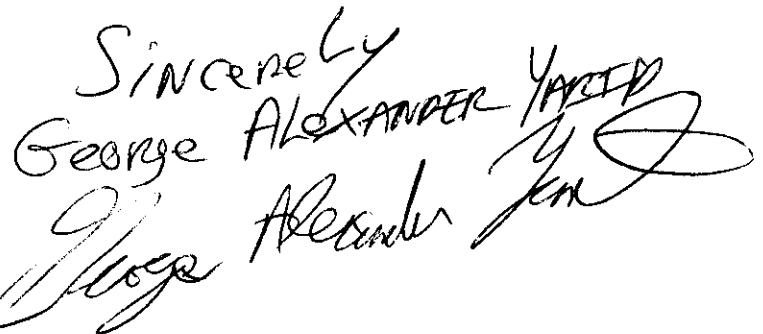 Sincerely
George ALexANDER YARID
George Alexander